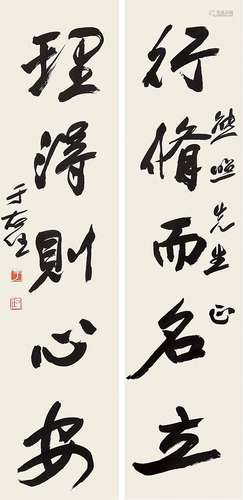 行脩而名立
熊照先生 正
理得則心安
于右任